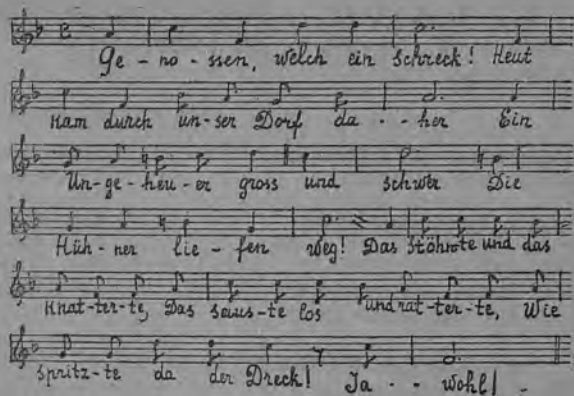 Ge - no - ssen, welch ein Schreck! Heut
kam durch un-ser Dorf da - - her Ein
Un-ge-heu-er gross und schwer Die
Hüh - ner lie - fen weg! Das stöhnte und das
knat-ter-te, Das saus-te los und rat-ter-te, Wie
spritz-te da der Dreck! Ja - - wohl! -